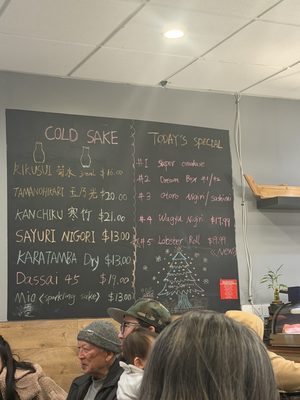 COLD SAKE
KIKUSUI 菊水 $16.00
TAMANOHIKARI 玉乃光 $20.00
KANCHIKU 寒竹 $21.00
SAYURI NIGORI $13.00
KARATAMBA Dry $13.00
Dassai 45 $19.00
Mio (sparkling sake) $13.00
TODAY'S SPECIAL
#1 Super omakase
#2 Dream Box #1/#2
#3 Otoro Nigiri/sashimi
#4 Wagyu Nigiri $17.99
#5 Lobster Roll $19.99